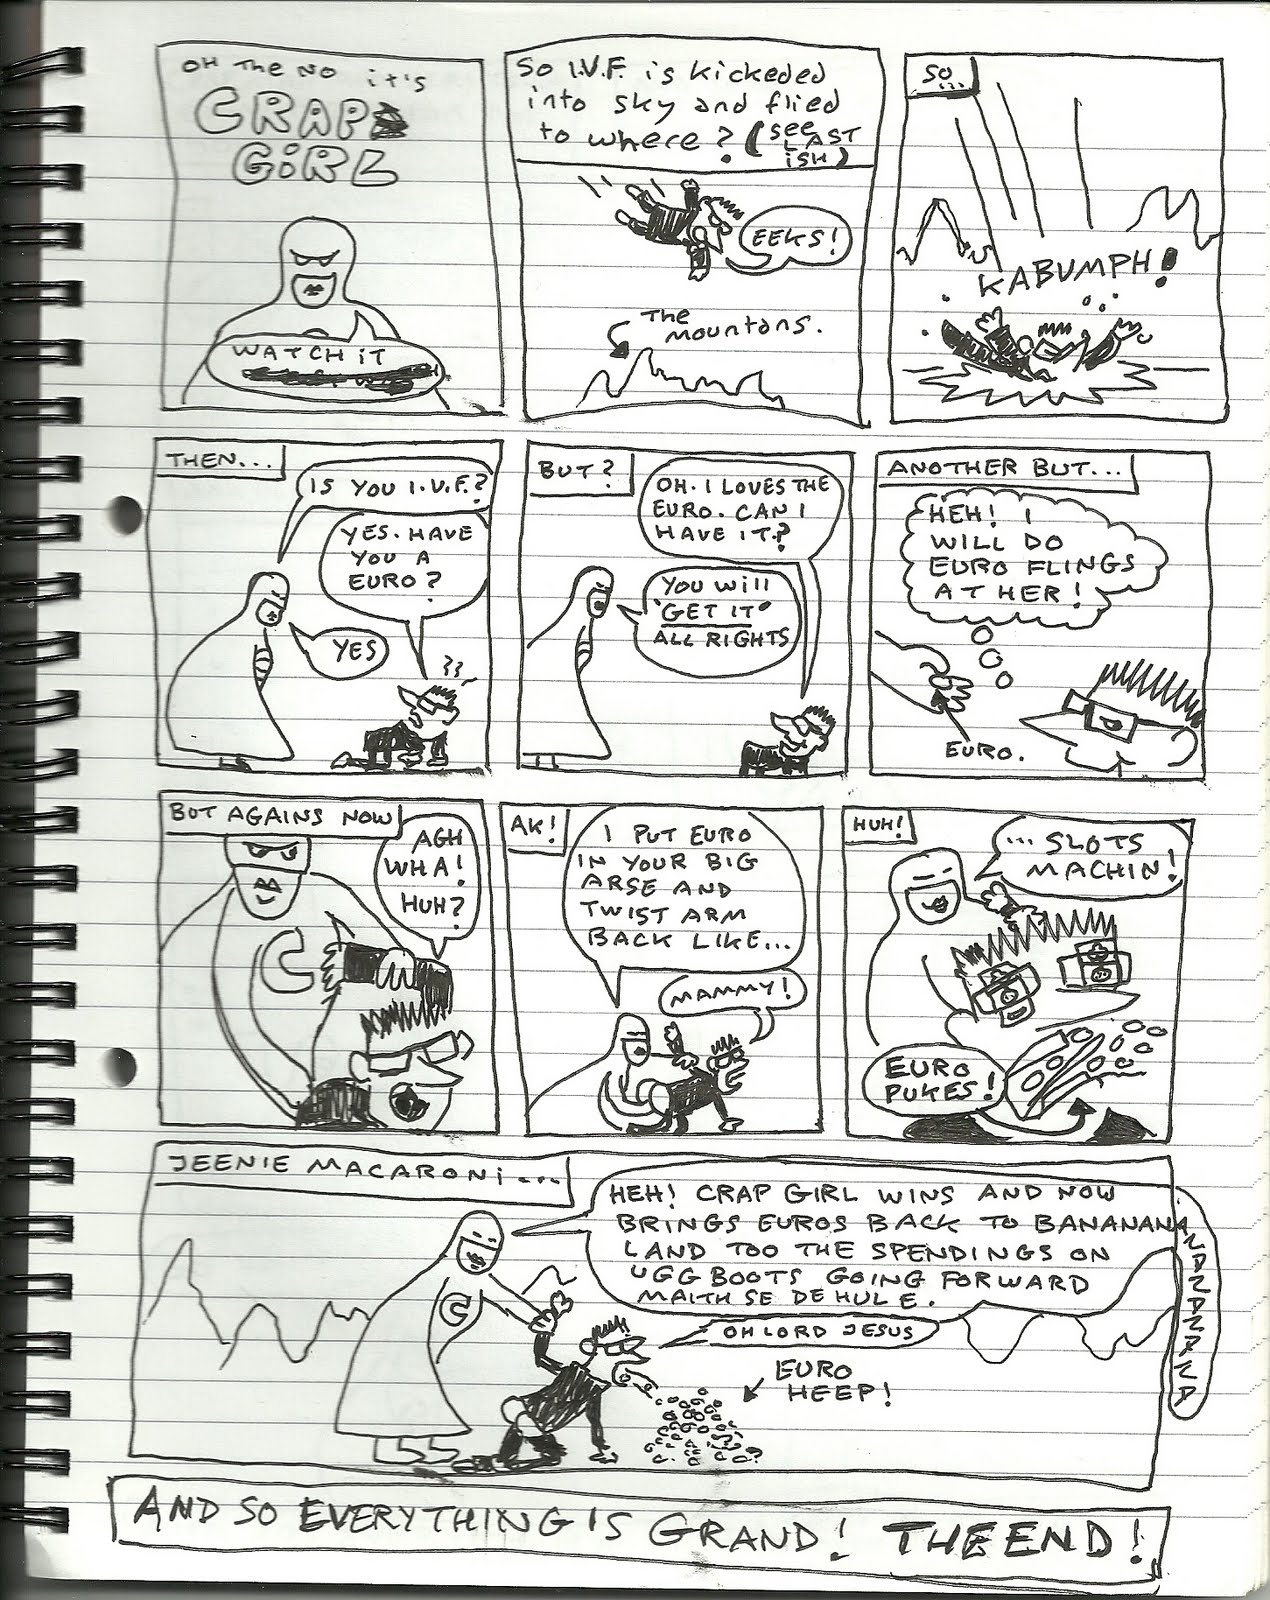 OH The NO it's
CRAP
GIRL
WATCH IT
SO I.V.F. is kickeded
into sky and flied
to where? (see
LAST
ISH)
EEKS!
The
mountans.
SO...
KABUMPH!
THEN...
IS YOU I.V.F.?
YES. HAVE
YOU A
EURO?
YES
??
BUT?
OH. I LOVES THE
EURO. CAN I
HAVE IT?
YOU WILL
"GET IT"
ALL RIGHTS
ANOTHER BUT...
HEH! I
WILL DO
EURO FLINGS
AT HER!
EURO.
BUT AGAINS NOW
AGH
WHA!
HUH?
C
AK!
I PUT EURO
IN YOUR BIG
ARSE AND
TWIST ARM
BACK LIKE...
MAMMY!
HUH!
... SLOTS
MACHIN!
EURO
PUKES!
JEENIE MACARONI...
HEH! CRAP GIRL WINS AND NOW
BRINGS EUROS BACK TO BANANANANANANANANA
LAND TOO THE SPENDINGS ON
UGG BOOTS GOING FORWARD
MAITH SE DE HULE.
C
OH LORD JESUS
EURO
HEEP!
AND SO EVERYTHING IS GRAND! THE END!